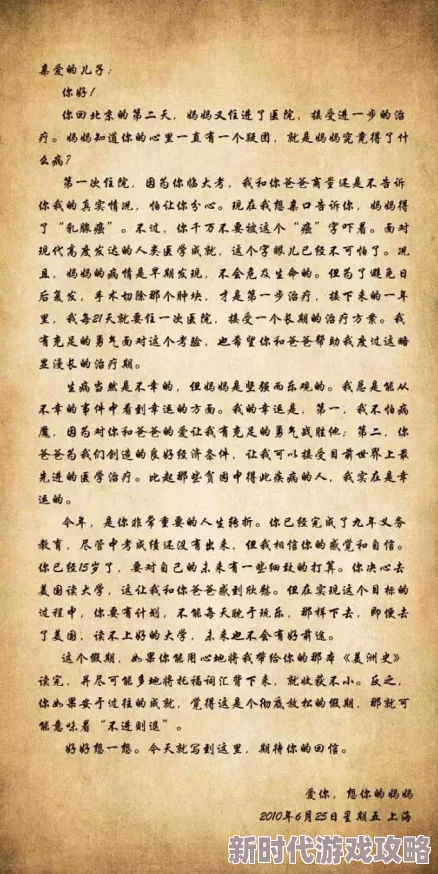 亲爱的儿子：
你好！
你回北京的第二天，妈妈又住进了医院，接受进一步的治
疗。妈妈知道你的心里一直有一个疑团，就是妈妈究竟得了什
么病？
第一次住院，因为你临大考，我和你爸爸商量还是不告诉
你我的真实情况，怕让你分心。现在我想亲口告诉你，妈妈得
了“乳腺癌”。不过，你千万不要被这个“癌”字吓着。面对
现代高度发达的人类医学成就，这个字眼儿已经不可怕了。况
且，妈妈的病情是早期发现，不会危及生命的。但为了避免日
后复发，手术切除那个肿块，才是第一步治疗，接下来的一年
里，我每21天就要住一次医院，接受一个长期的治疗方案。我
有充足的勇气面对这个考验，也希望你和爸爸帮助我度过这暗
里漫长的治疗期。
生病当然是不幸的，但妈妈是坚强而乐观的。我总是能从
不幸的事件中看到幸运的方面。我的幸运是，第一，我不怕病
魔，因为对你和爸爸的爱让我有充足的勇气战胜他；第二，你
爸爸为我们创造的良好经济条件，让我可以接受目前世界上最
先进的医学治疗。比起那些贫困中得此疾病的人，我实在是幸
运的。
今年，是你非常重要的人生转折。你已经完成了九年义务
教育，尽管中考成绩还没有出来，但我相信你的感觉和自信。
你已经15岁了，要对自己的未来有一些细致的打算。你决心去
美国读大学，这让我和你爸爸感到欣慰。但在实现这个目标的
过程中，你要有计划，不能每天耽于玩乐，那样下去，即便去
了美国，读不上好的大学，未来也不会有好前途。
这个假期，如果你能用心地将我带给你的那本《美洲史》
读完，并尽可能多地将托福词汇背下来，就收获不小。反之，
你如果安于过往的成就，觉得这是个彻底放松的假期，那就可
能意味着“不进则退”。
好好想一想。今天就写到这里，期待你的回信。
爱你，想你的妈妈
2010年6月25日星期五 上海
新时代游戏攻略